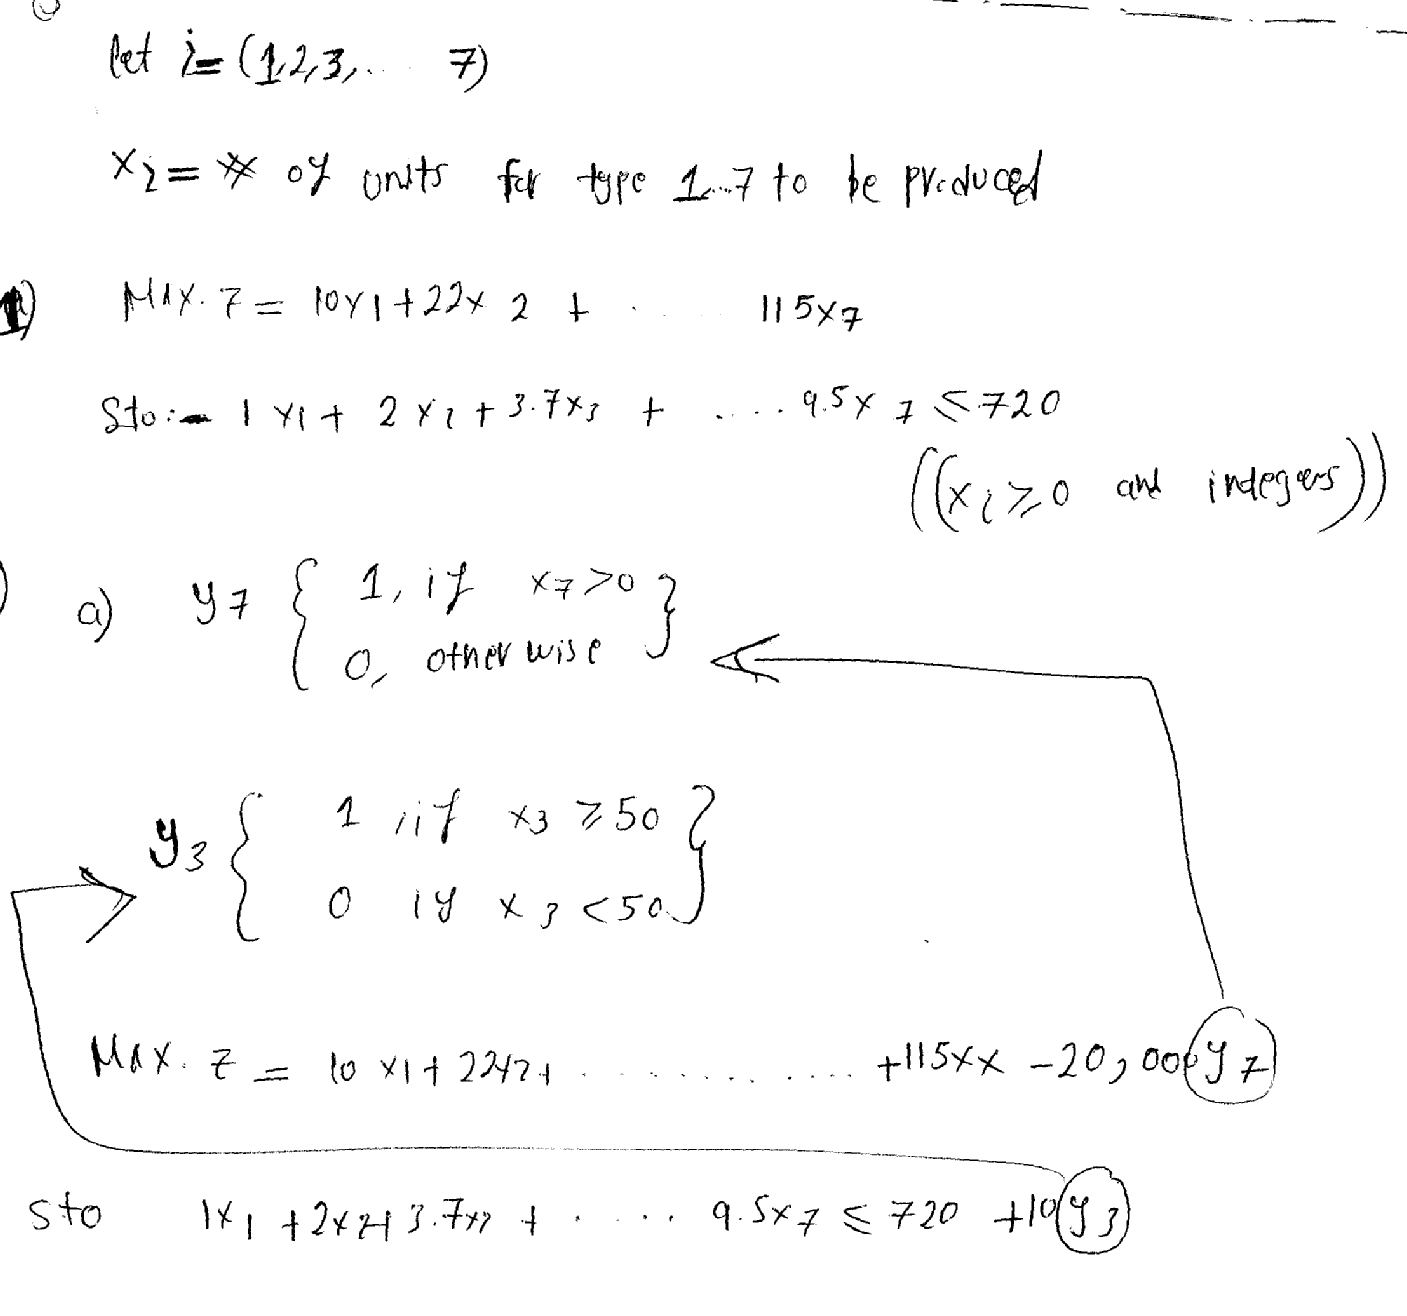 let i = (1,2,3,.. 7)
xi = # of units for type 1...7 to be produced
1) Max. Z = 10x1 + 22x2 + . ..... 115x7
Sto:- 1x1 + 2x2 + 3.7x3 + .... 9.5x7 ≤ 720
((xi ≥ 0 and integers))
a) y7 { 1, if x7 > 0
0, otherwise }
y3 { 1 , if x3 ≥ 50
0 if x3 < 50 }
Max. Z = 10x1 + 22x2 + ............ + 115xx - 20,000y7
Sto 1x1 + 2x2 + 3.7x3 + .... 9.5x7 ≤ 720 + 10y3